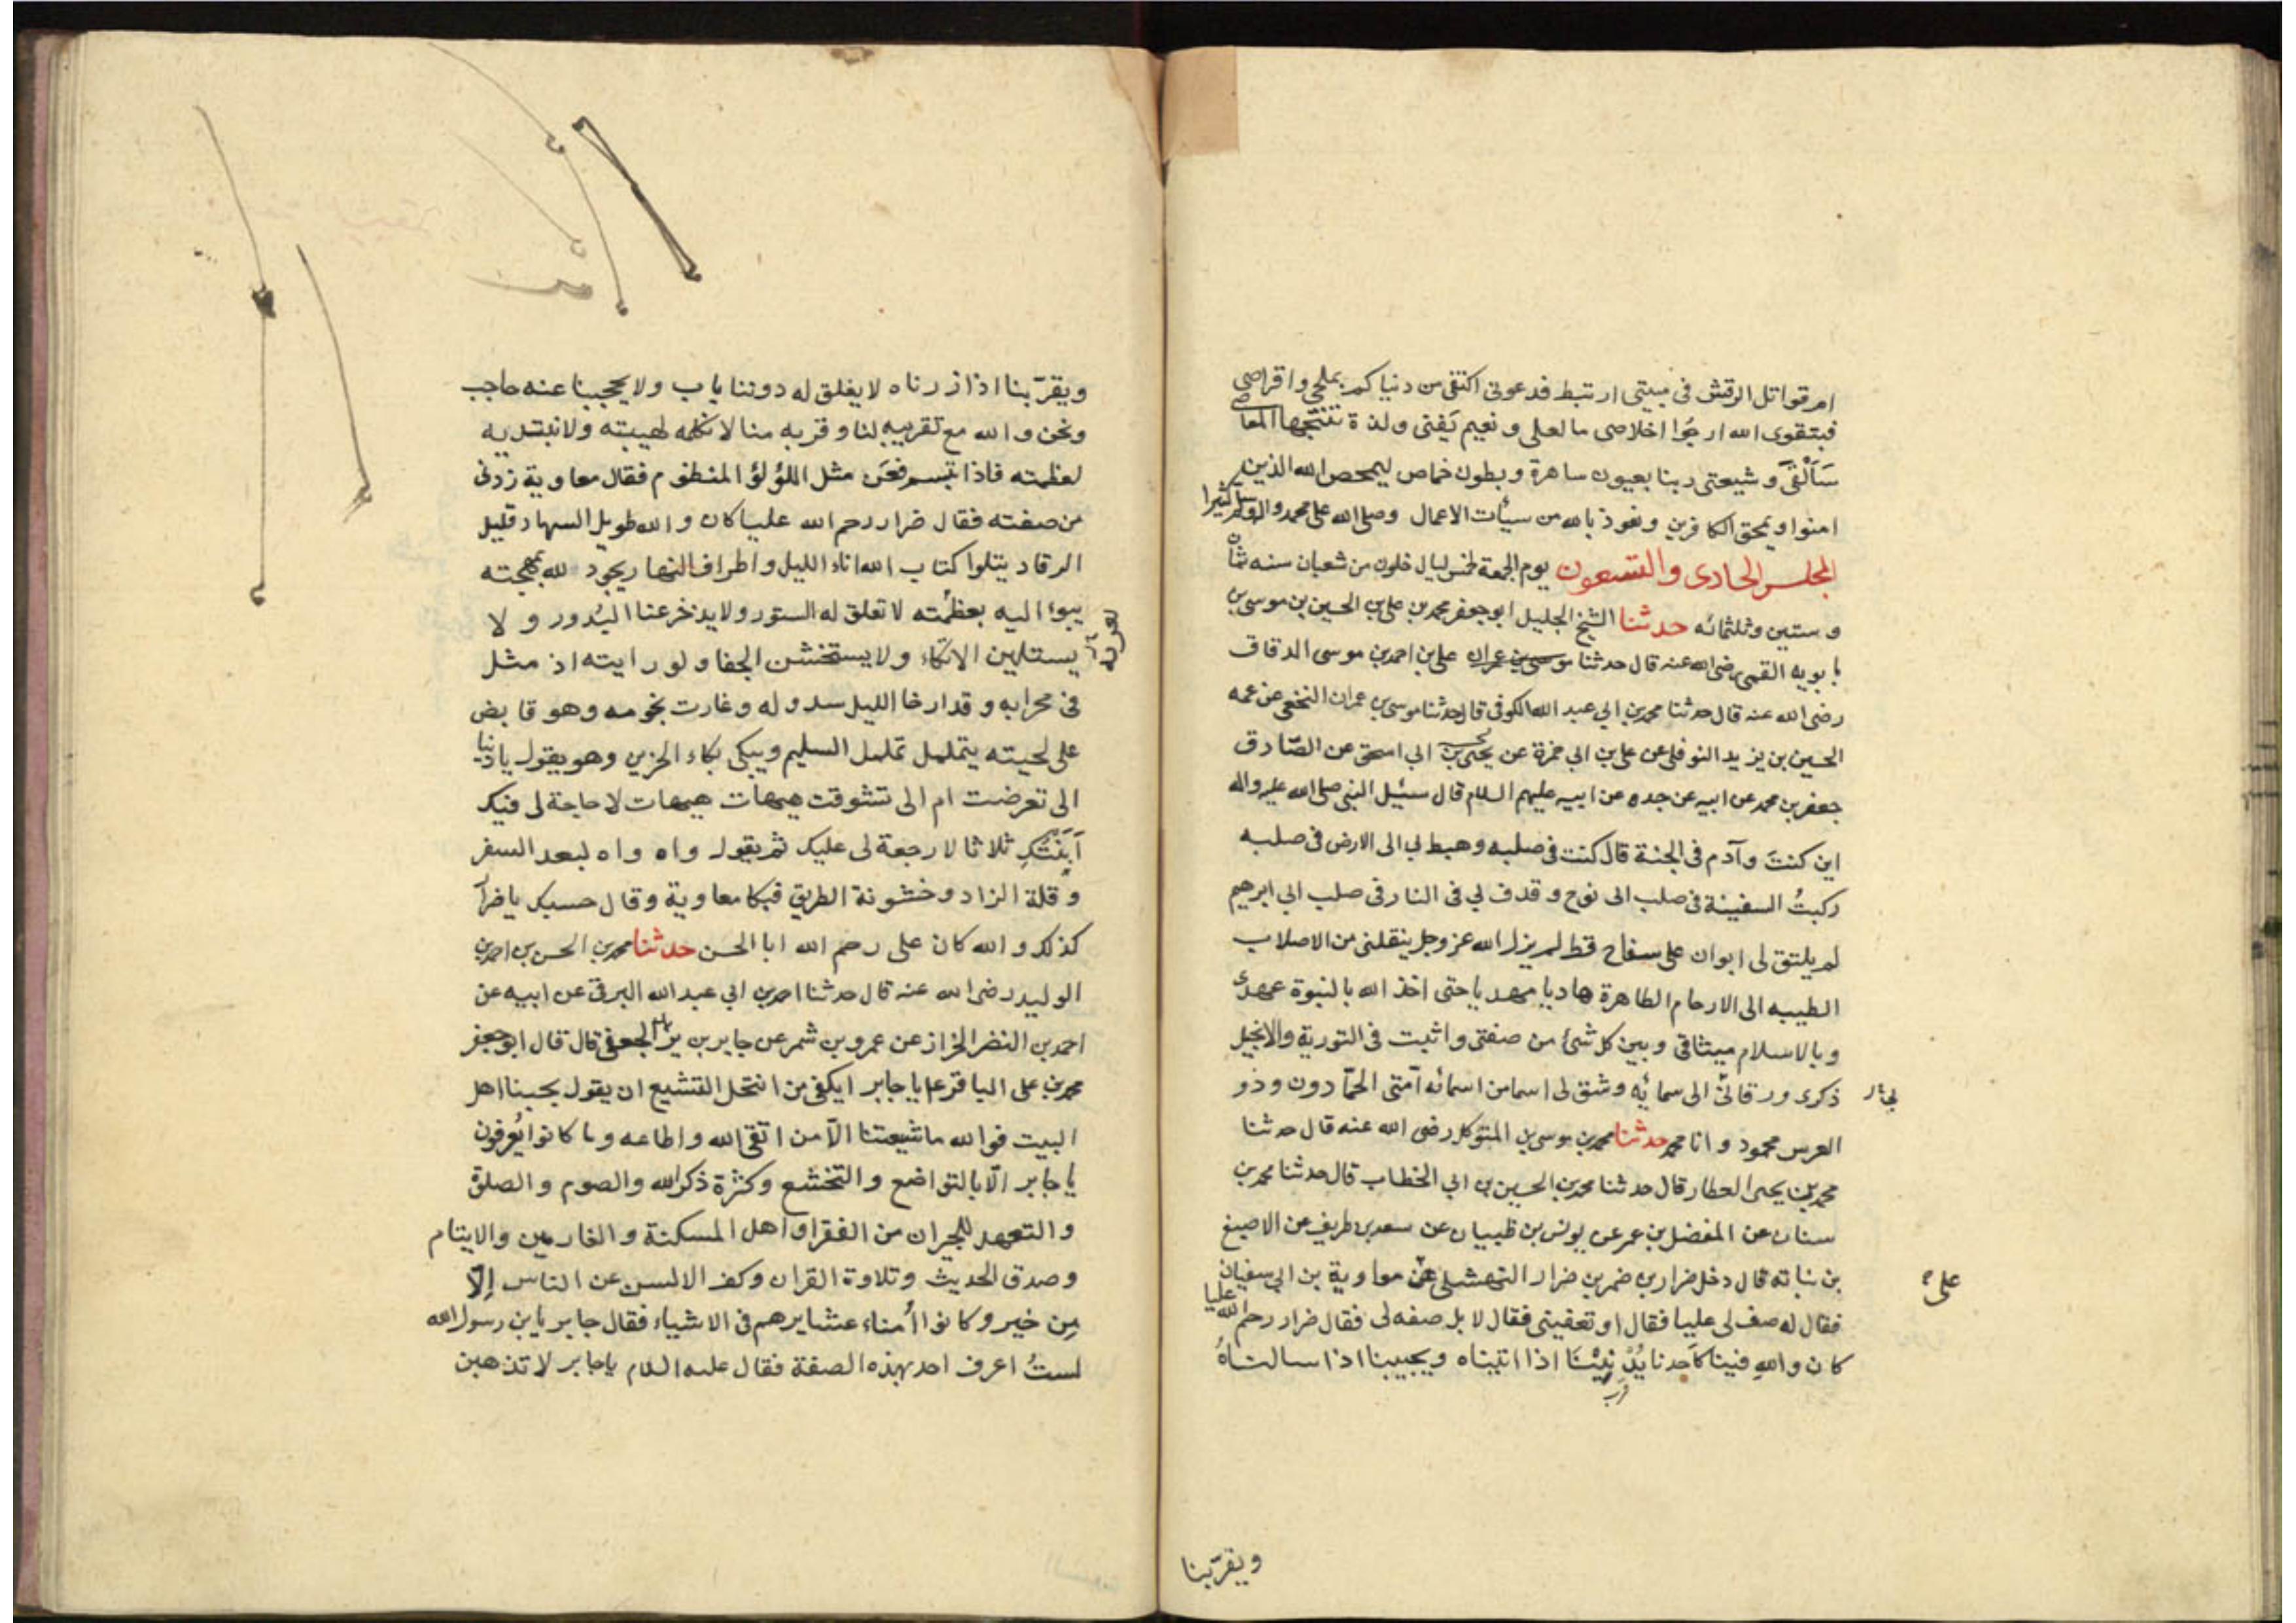 ام رقوا تل الرقش في مبيتي ارتبط فدعوني اكتفي من دنياكم بملحي واقراصي
فبتقوى الله ارجوا خلاصي ما لعلي ونعيم يفنى ولذة تنتجها المعاصي
سَأَلْقَى وشيعتي ربنا بعيون ساهرة وبطون خماص ليمحص الله الذين
امنوا ويمحق الكافرين ونعوذ بالله من سيأت الاعمال وصلى الله على محمد واله كثيرا
المجلس الحادى والتسعون يوم الجمعة لخمس ليال خلون من شعبان سنه ثمان
و ستين وثلثمائه حدثنا الشيخ الجليل ابو جعفر محمد بن على بن الحسين بن موسى بن
بابويه القمى رضى الله عنه قال حدثنا موسى بن عمران على بن احمد بن موسى الدقاق
رضى الله عنه قال حدثنا محمد بن ابي عبد الله الكوفى قال حدثنا موسى بن عمران النخعى عن عمه
الحسين بن يزيد النوفلى عن على بن ابي حمزة عن يحيى بن ابي اسحق عن الصّادق
جعفر بن محمد عن ابيه عن جده عن ابيه عليهم السلام قال سئيل النبى صلى الله عليه واله
اين كنتَ وآدم فى الجنة قال كنت فى صلبه وهبط بي الى الارض فى صلبه
ركبتُ السفينة فى صلب ابى نوح و قدف بي فى النار فى صلب ابي ابرهيم
لم يلتق لى ابوان على سفاح قط لم يزل الله عز وجل ينقلنى من الاصلاب
الطيبه الى الارحام الطاهرة هاديا مهديا حتى اخذ الله بالنبوة عهدى
وبالاسلام ميثاقى وبين كل شئ من صفتى واثبت فى التورية والانجيل
ذكرى ورقانى الى سمائه وشق لى اسما من اسمائه امّتى الحمّادون وذو
العرس محمود وانا محمد حدثنا محمد بن موسى بن المتوكل رضى الله عنه قال حدثنا
محمد بن يحيى العطار قال حدثنا محمد بن الحسين بن ابي الخطاب قال حدثنا محمد بن
سنان عن المفضل بن عمر عن يونس بن ظبيان عن سعد بن طريف عن الاصبغ
بن نباته قال دخل ضرار بن ضمر بن ضرار النهشلى عن معاوية بن ابي سفيان
على
فقال له صف لى عليا فقال او تعفينى فقال لا بل صفه لى فقال ضرار رحم الله عليا
كان والله فينا كاحدنا يُدْنِيْنَا اذا اتيناه ويجيبنا اذا سالناهُ
ويقرّبنا
ويقرّبنا اذا زرناه لا يغلق له دوننا باب ولا يحجبنا عنه حاجب
ونحن والله مع تقريبه لنا وقربه منا لا نكلمه لهيبته ولا نبتديه
لعظمته فاذا تبسم فعن مثل اللؤلؤ المنظوم فقال معاوية زدنى
من صفته فقال ضرار رحم الله عليا كان والله طويل السهاد قليل
الرقاد يتلوا كتاب الله اناء الليل واطراف النهار يجود لله بمهجته
يبوء اليه بعظمته لا تغلق له الستور ولا يدخر عنا البُدور و لا
يستلين الاتكاء ولا يستخشن الجفا ولو رايته اذ مثل
فى محرابه وقد ارخا الليل سدوله وغارت نجومه وهو قابض
على لحيته يتململ تململ السليم ويبكى بكاء الحزين وهو يقول يا دنيا
الى تعرضت ام الى تشوقت هيهات هيهات لا حاجة لى فيك
اَبَنْتُكِ ثلاثا لا رجعة لى عليك ثم يقول واه واه لبعد السفر
وقلة الزاد وخشونة الطريق فبكا معاوية وقال حسبك يا ضرار
كذلك والله كان على رحم الله ابا الحسن حدثنا محمد بن الحسن بن احمد بن
الوليد رضى الله عنه قال حدثنا احمد بن ابي عبد الله البرقى عن ابيه عن
احمد بن النضر الخزاز عن عمرو بن شمر عن جابر بن يزيد الجعفى قال قال ابو جعفر
محمد بن على الباقر ع يا جابر ايكفى من انتحل التشيع ان يقول بحبنا اهل
البيت فوالله ما شيعتنا الّا من اتقى الله واطاعه وما كانوا يُعرفون
يا جابر الّا بالتواضع والتخشع وكثرة ذكر الله والصوم والصلوة
والتعهد للجيران من الفقرا واهل المسكنة والغارمين والايتام
وصدق الحديث وتلاوة القران وكف الالسن عن الناس إلّا
مِن خير وكانوا اُمناء عشايرهم فى الاشياء فقال جابر يابن رسول الله
لستُ اعرف احد بهذه الصفة فقال عليه السلام يا جابر لا تذهبن